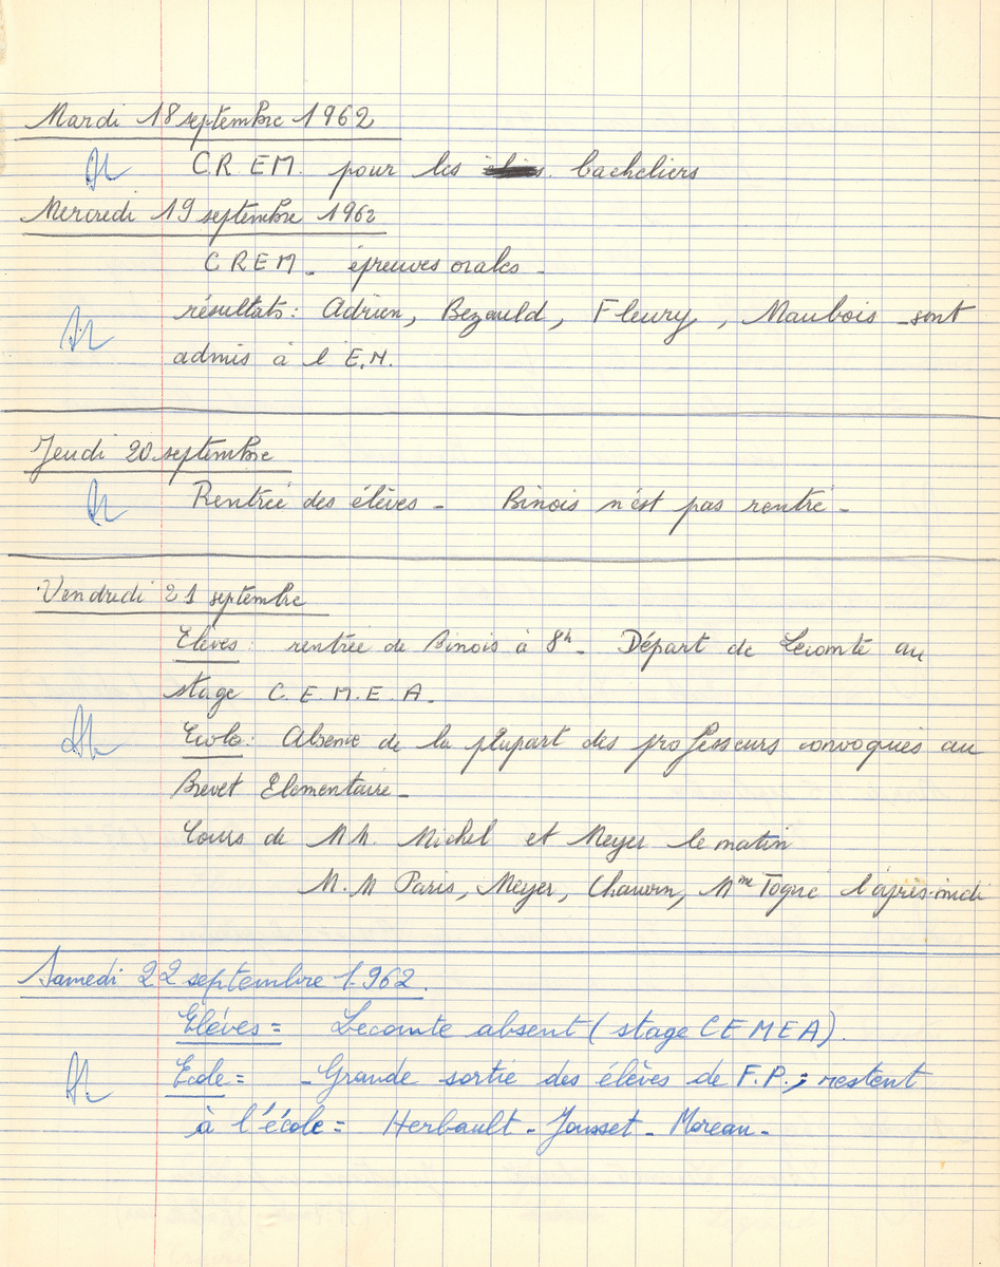 Mardi 18 septembre 1962
C.R.E.M. pour les bacheliers
Mercredi 19 septembre 1962
C R E M _ épreuves orales _
résultats : Adrien, Bezauld, Fleury, Maubois _ sont
admis à l'E.M.
Jeudi 20 septembre
Rentrée des élèves _ Binois n'est pas rentré _
Vendredi 21 septembre
Elèves : rentrée de Binois à 8h _ Départ de Lecomte au
stage C.E.M.E.A.
Ecole : Absence de la plupart des professeurs convoqués au
Brevet Elementaire _
Cours de M M. Michel et Meyer le matin
M.M Paris, Meyer, Mme Togné l'après-midi
Samedi 22 septembre 1.962.
Elèves = Lecomte absent ( stage CEMEA).
Ecole = _ Grande sortie des élèves de F.P. ; restent
à l'école = Herbault - Jousset - Moreau -